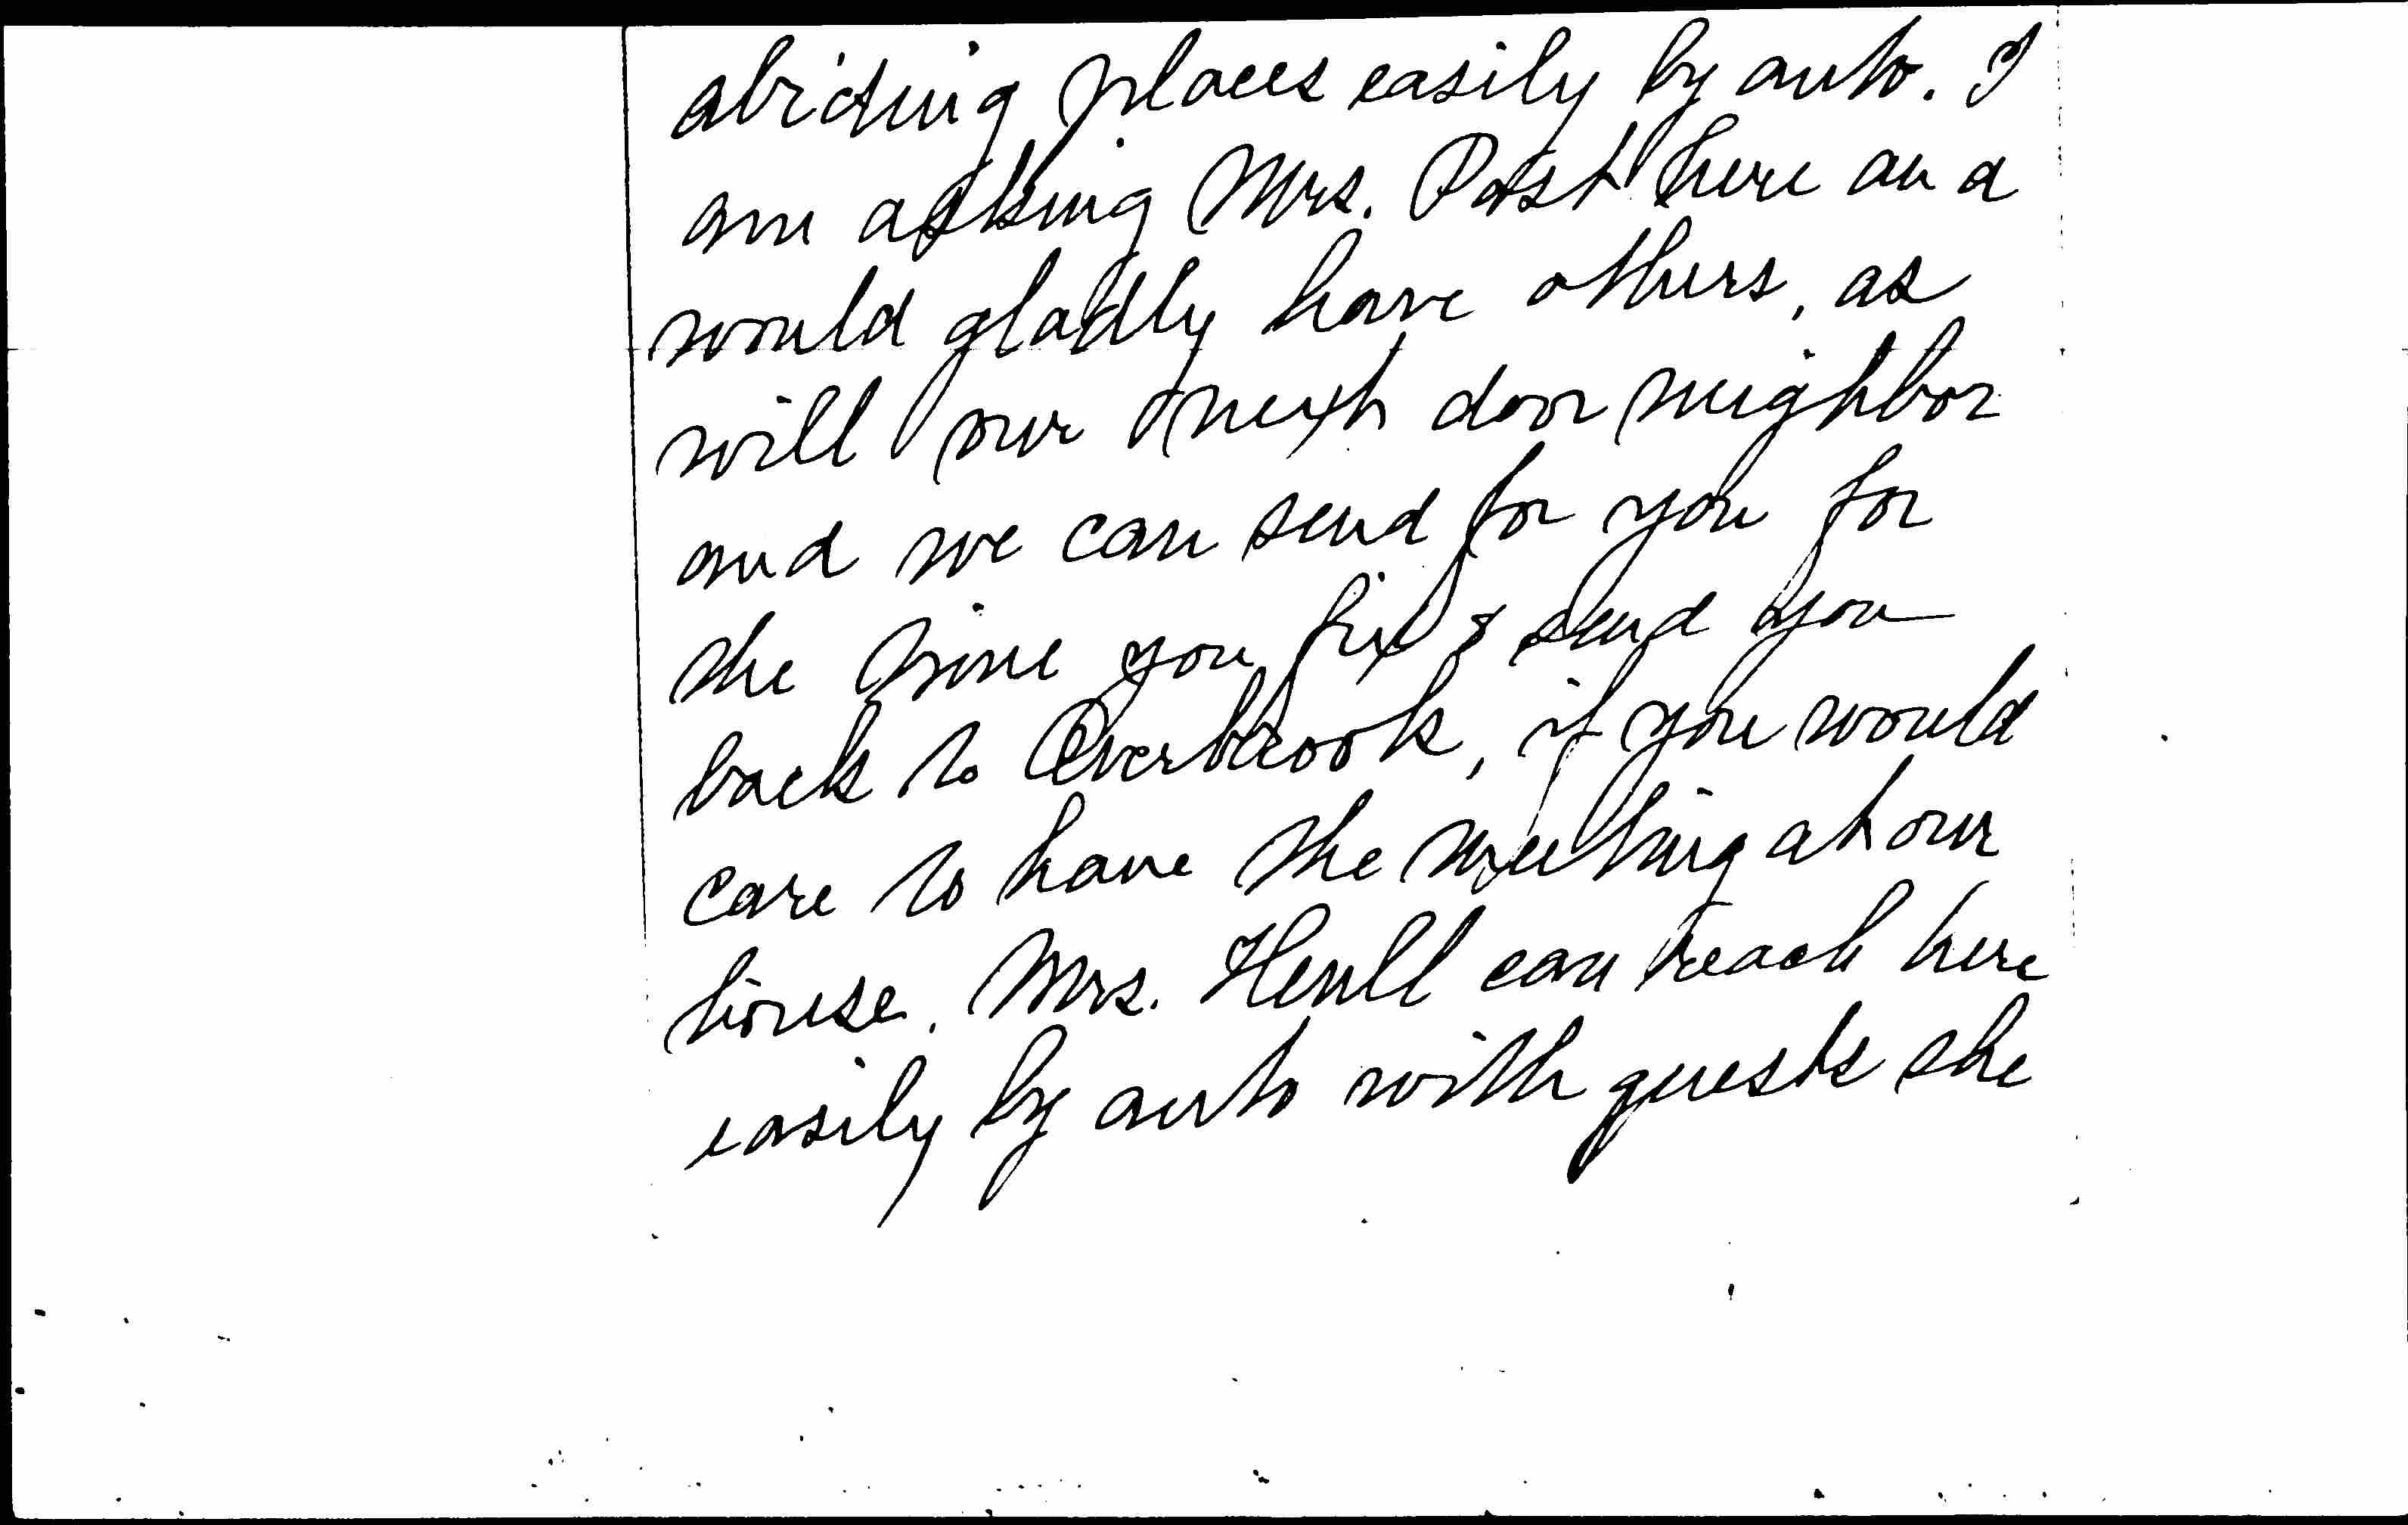 abiding places easily by auto. I
am asking Mrs. Post here and
would gladly have others, as
will our next door neighbor
and we can send for you for
the time you fix & send you
back to Overbrook, if you would
care to have the meeting at our
house. Mrs. can reach here
easily by auto with guests she